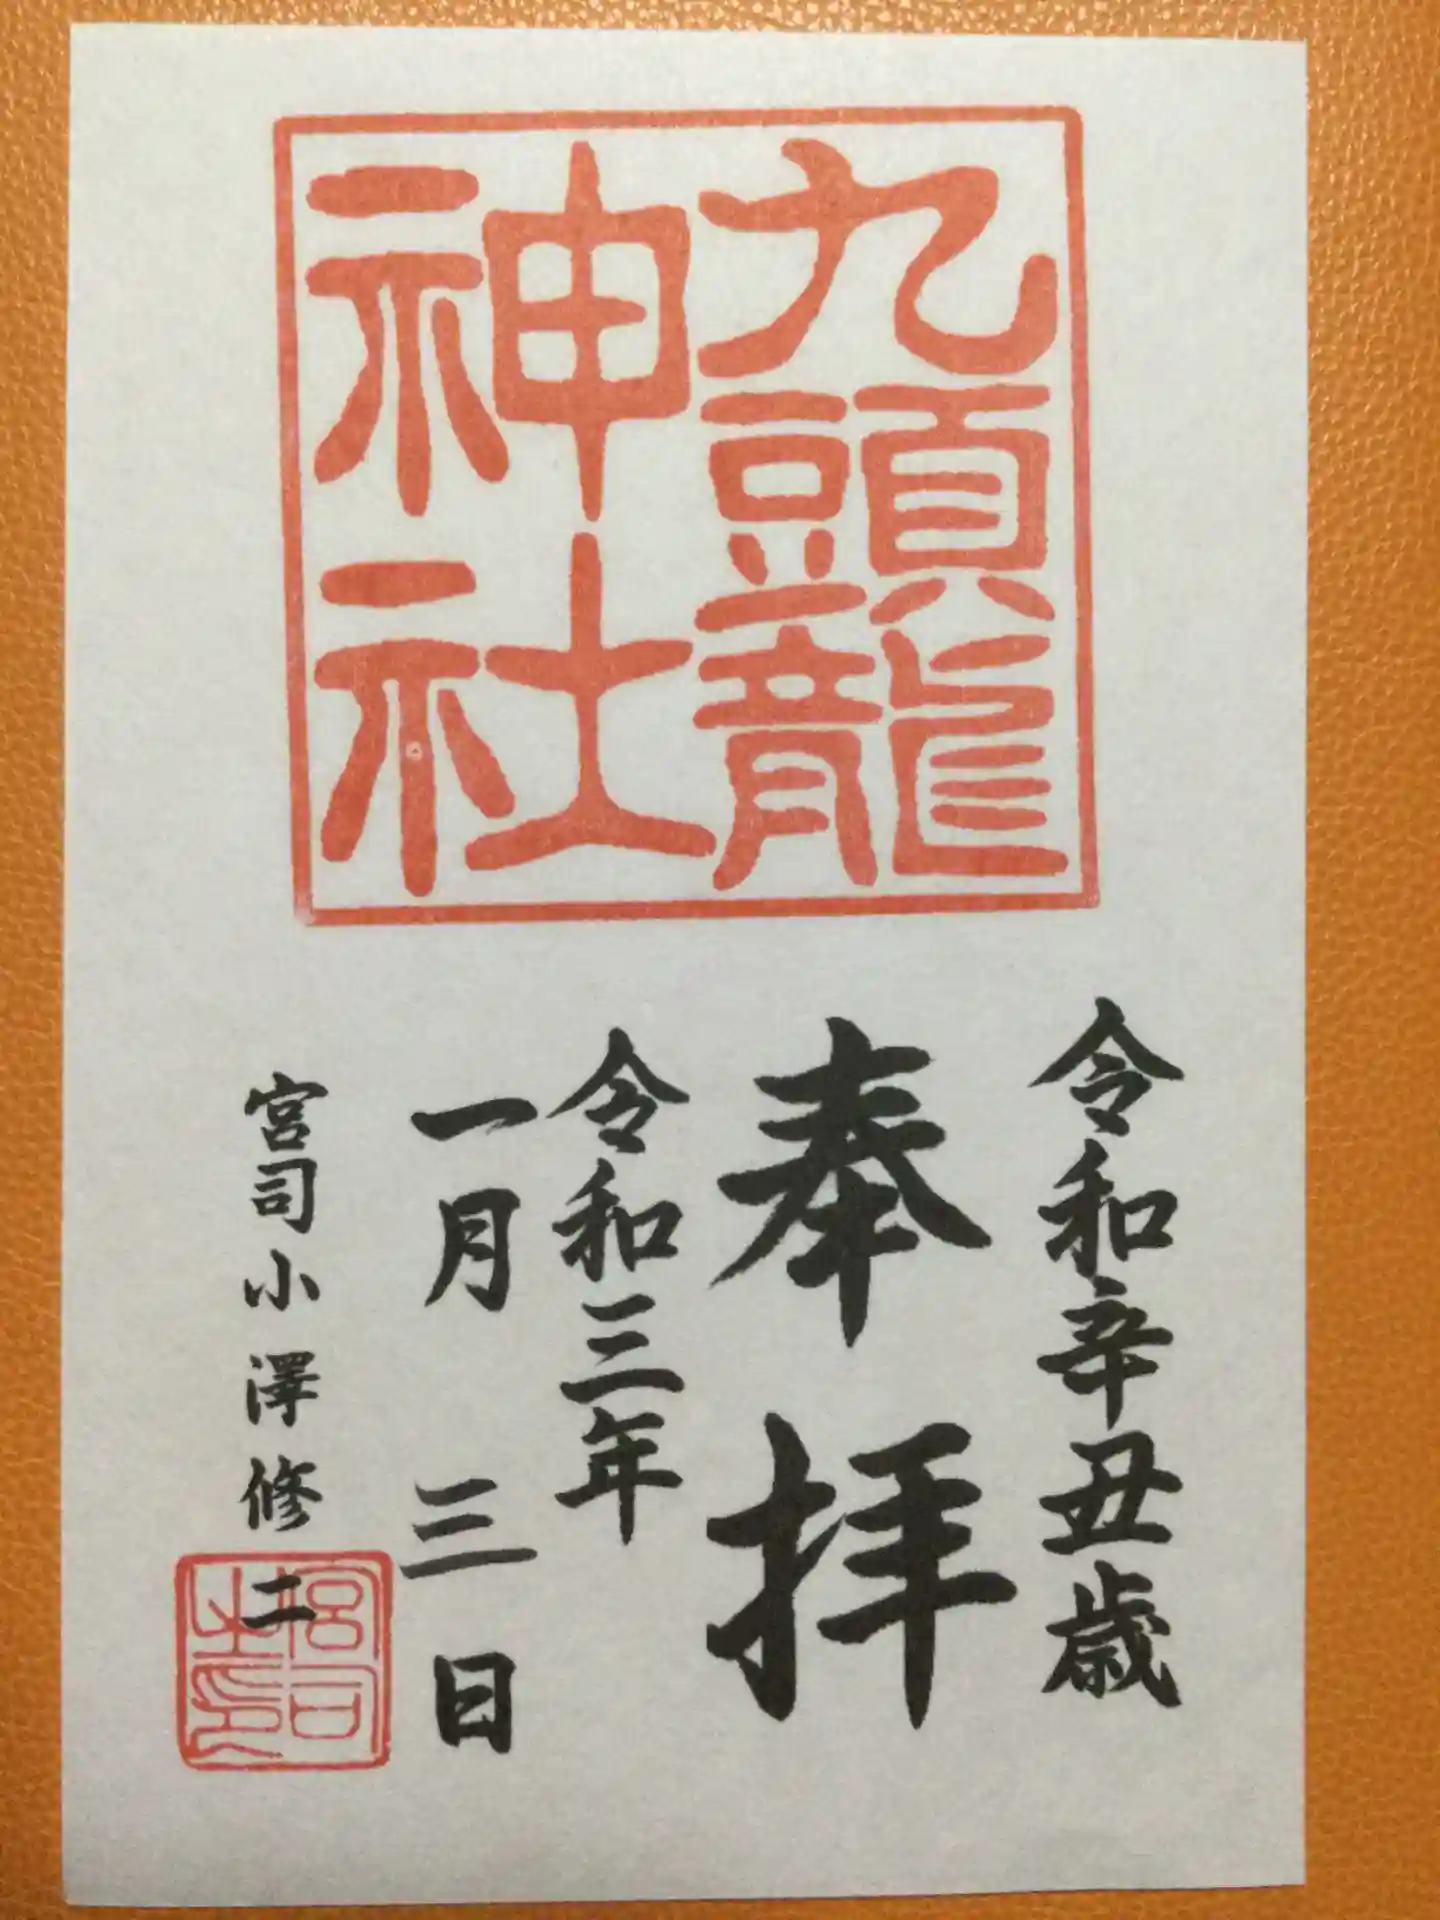 九頭龍
神社
令和辛丑歳
奉拝
令和三年
一月三日
宮司小澤修二
宮司
之印